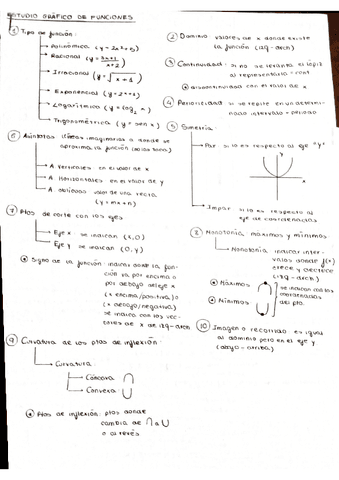 ESTUDIO GRÁFICO DE FUNCIONES
1 Tipo de función:
Polinómica (y = 2x²+5)
Racional (y = 3x+1 / x+2)
Irracional (y = √x+1)
Exponencial
Logarítmica (y = log₂ x)
Trigonométrica (y = sen x)
2 Dominio valores de x donde existe
la función (izq - drch)
3 Continuidad: si no se levanta el lápiz
al representarla = cont
* discontinuidad con el valor de x
4 Periodicidad si se repite en un determi-
nado intervalo = periodo
5 Simetría
Par si lo es respecto al eje "y"
Impar si lo es respecto al
eje de coordenadas
6 Asíntotas líneas imaginarias a donde se
aproxima la función
A Verticales en el valor de x
A Horizontales en el valor de y
A oblicuas valor de una recta
(y = mx + n)
7 Ptos de corte con los ejes
Eje x se indican (x, 0)
Eje y se indican (0, y)
* Signo de la función: indicar donde la fun-
ción va por encima o
por debajo del eje x
(x encima/positiva) o
(x abajo/negativa)
se indica con los valo-
res de x de izq - drch
8 Monotonía máximos y mínimos
Monotonía indicar inter-
valos donde f(x)
crece y decrece
(izq - drch)
* Máximos
* Mínimos
se indican con las
coordenadas
del pto.
9 Curvatura de los ptos de inflexión:
Curvatura
Cóncava ∩
Convexa ∪
* Ptos de inflexión: ptos donde
cambia de ∩ a ∪
o al revés
10 Imagen o recorrido es igual
al dominio pero en el eje y
(abajo - arriba)